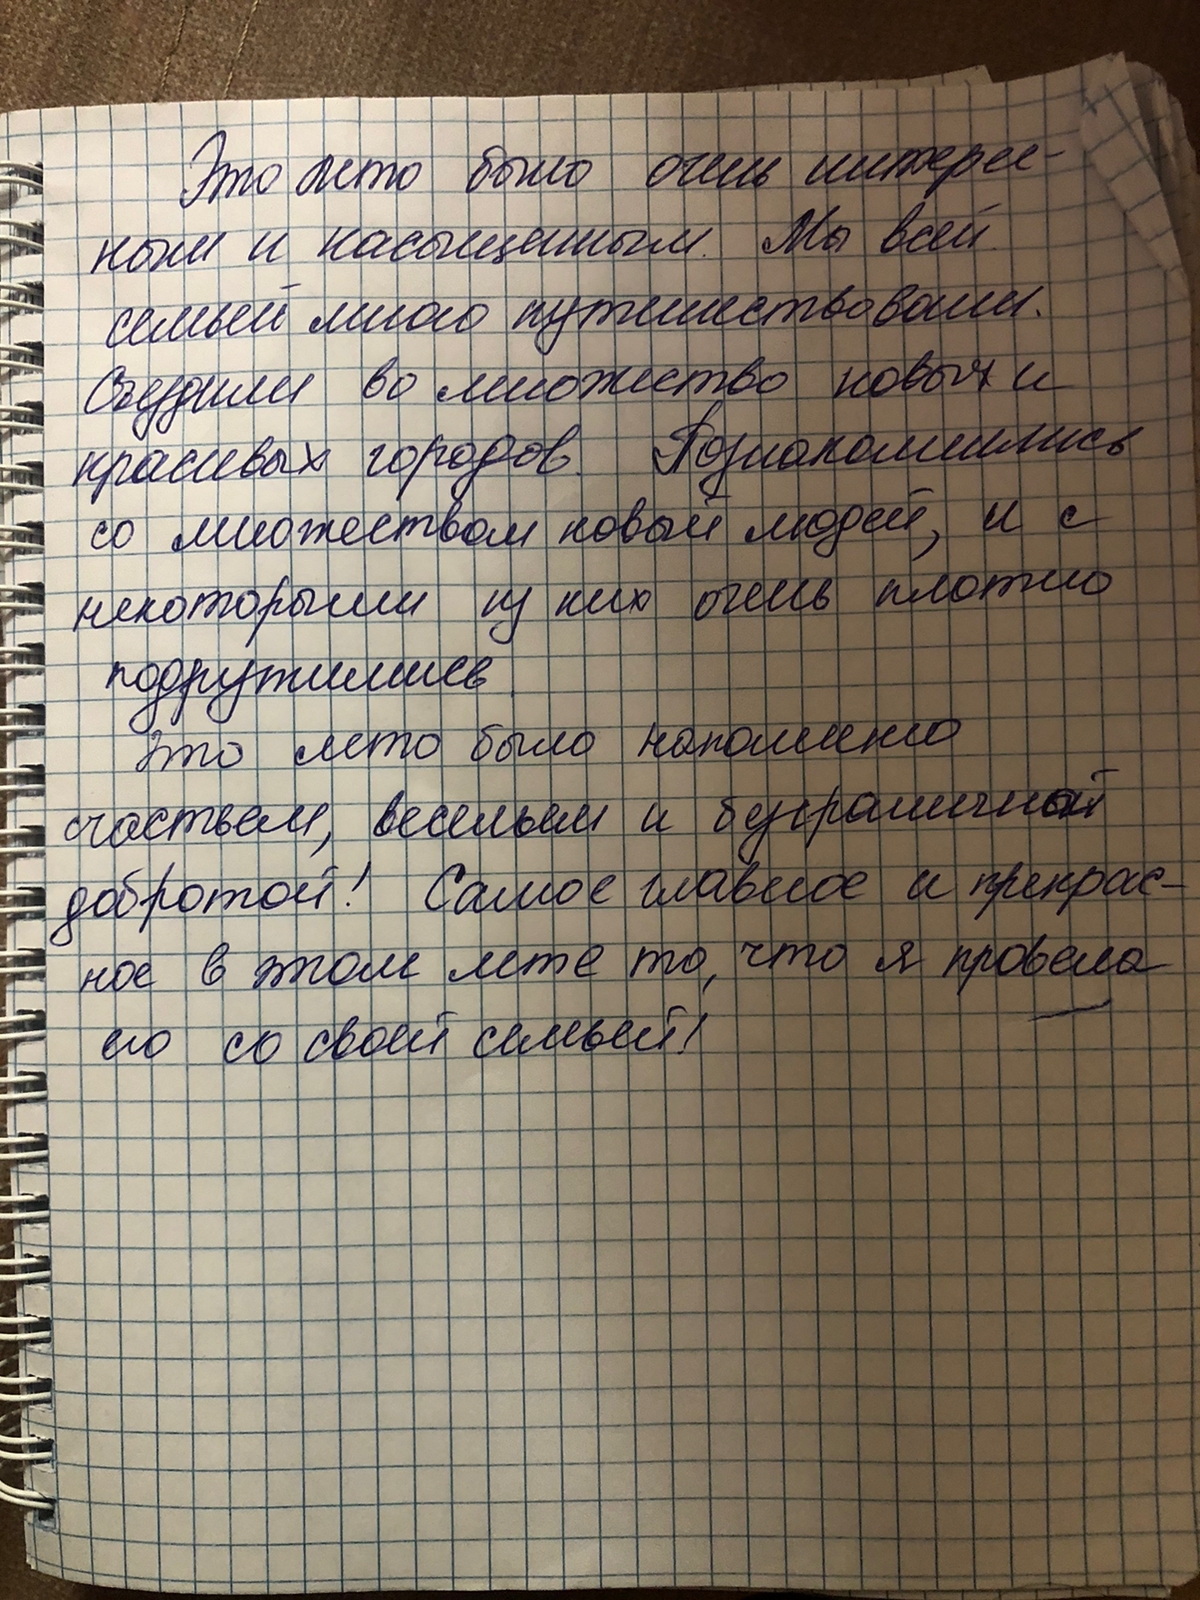 Это лето было очень интерес-
ным и насыщенным. Мы всей
семьей много путешествовали.
Съездили во множество новых и
красивых городов. Познакомились
со множеством новый людей, и с
некоторыми из них очень плотно
подружились.
Это лето было наполнено
счастьем, весельем и безграничной
добротой! Самое главное и прекрас-
ное в этом лете то, что я провела
его со своей семьей!